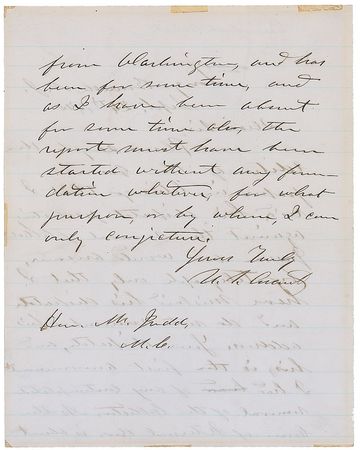 from Washington, and has
been for some time, and
as I have been absent
for some time also, the
report must have been
started without any foun-
dation whatever, for what
purpose, or by whom, I can
only conjecture.
Yours Truly
U. S. Grant
Hon. Mr. Judd,
M.C.